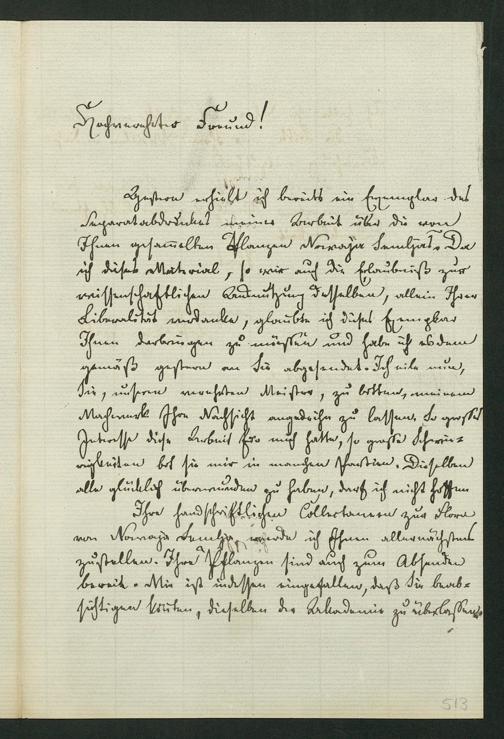 Hochverehrter Freund!
Gestern erhielt ich bereits ein Exemplar des
Separatabdruckes meiner Arbeit über die von
Ihnen gesammelten Pflanzen Nowaja Semljas. Da
ich dieses Material, so wie auch die Erlaubniß zur
wissenschaftlichen Benutzung desselben, allein Ihrer
Liberalität verdanke, glaubte ich dieses Exemplar
Ihnen darbringen zu müssen und habe ich es dem
gemäß gestern an Sie abgesendet. Ich eile nun,
Sie, unseren verehrten Meister, zu bitten, meinem
Machwerk Ihre Nachsicht angedeihn zu lassen. So großes
Interesse diese Arbeit für mich hatte, so große Schwie-
rigkeiten bot sie mir in manchen Partien. Dieselben
alle glücklich überwunden zu haben, darf ich nicht hoffen
Ihre handschriftlichen Collectaneen zur Flora
von Nowaja Semlja werde ich Ihnen allernächstens
zustellen. Ihre Pflanzen sind auch zum Absenden
bereit. Mir ist indessen eingefallen, daß Sie beab-
sichtigen könten, dieselben der Akademie zu überlassen,
513